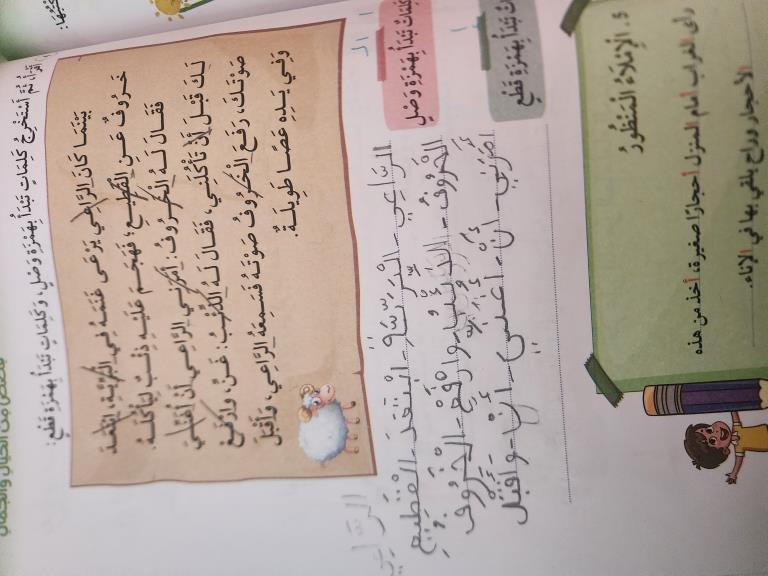 قصص من الخيال والجمال
أَقْرَأُ، ثُمَّ أَسْتَخْرِجُ كَلِمَاتٍ تَبْدَأُ بِهَمْزَةِ وَصْلٍ، وَكَلِمَاتٍ تَبْدَأُ بِهَمْزَةِ قَطْعٍ:
بَيْنَمَا كَانَ الرَّاعِي يَرْعَى غَنَمَهُ فِي الْبَرِّيَّةِ، ابْتَعَدَ
خَرُوفٌ عَنِ الْقَطِيعِ؛ فَهَجَمَ عَلَيْهِ ذِئْبٌ لِيَأْكُلَهُ.
فَقَالَ لَهُ الْخَرُوفُ: أَمَرَنِي الرَّاعِي أَنْ أُغَنِّيَ
لَكَ قَبْلَ أَنْ تَأْكُلَنِي، فَقَالَ لَهُ الذِّئْبُ: غَنِّ، وَارْفَعْ
صَوْتَكَ، رَفَعَ الْخَرُوفُ صَوْتَهُ فَسَمِعَهُ الرَّاعِي، وَأَقْبَلَ
وَفِي يَدِهِ عَصًا طَوِيلَةٌ.
ا ال
كَلِمَاتٌ تَبْدَأُ بِهَمْزَةِ وَصْلٍ
الرَّاعِي - الْبَرِّيَّةِ - ابْتَعَدَ - الْقَطِيعِ
الْخَرُوفُ - الذِّئْبُ - وارْفَعْ - الْخَرُوفُ
الرَّاعِي
أ
تَبْدَأُ بِهَمْزَةِ قَطْعٍ
أَنْ - أَنْ - وأَقْبَلَ
5. الْإِمْلَاءُ الْمَنْظُورُ
رأى الغراب أمام المنزل أحجارًا صغيرة، أخذ من هذه
الأحجار وراح يلقي بها في الإناء.